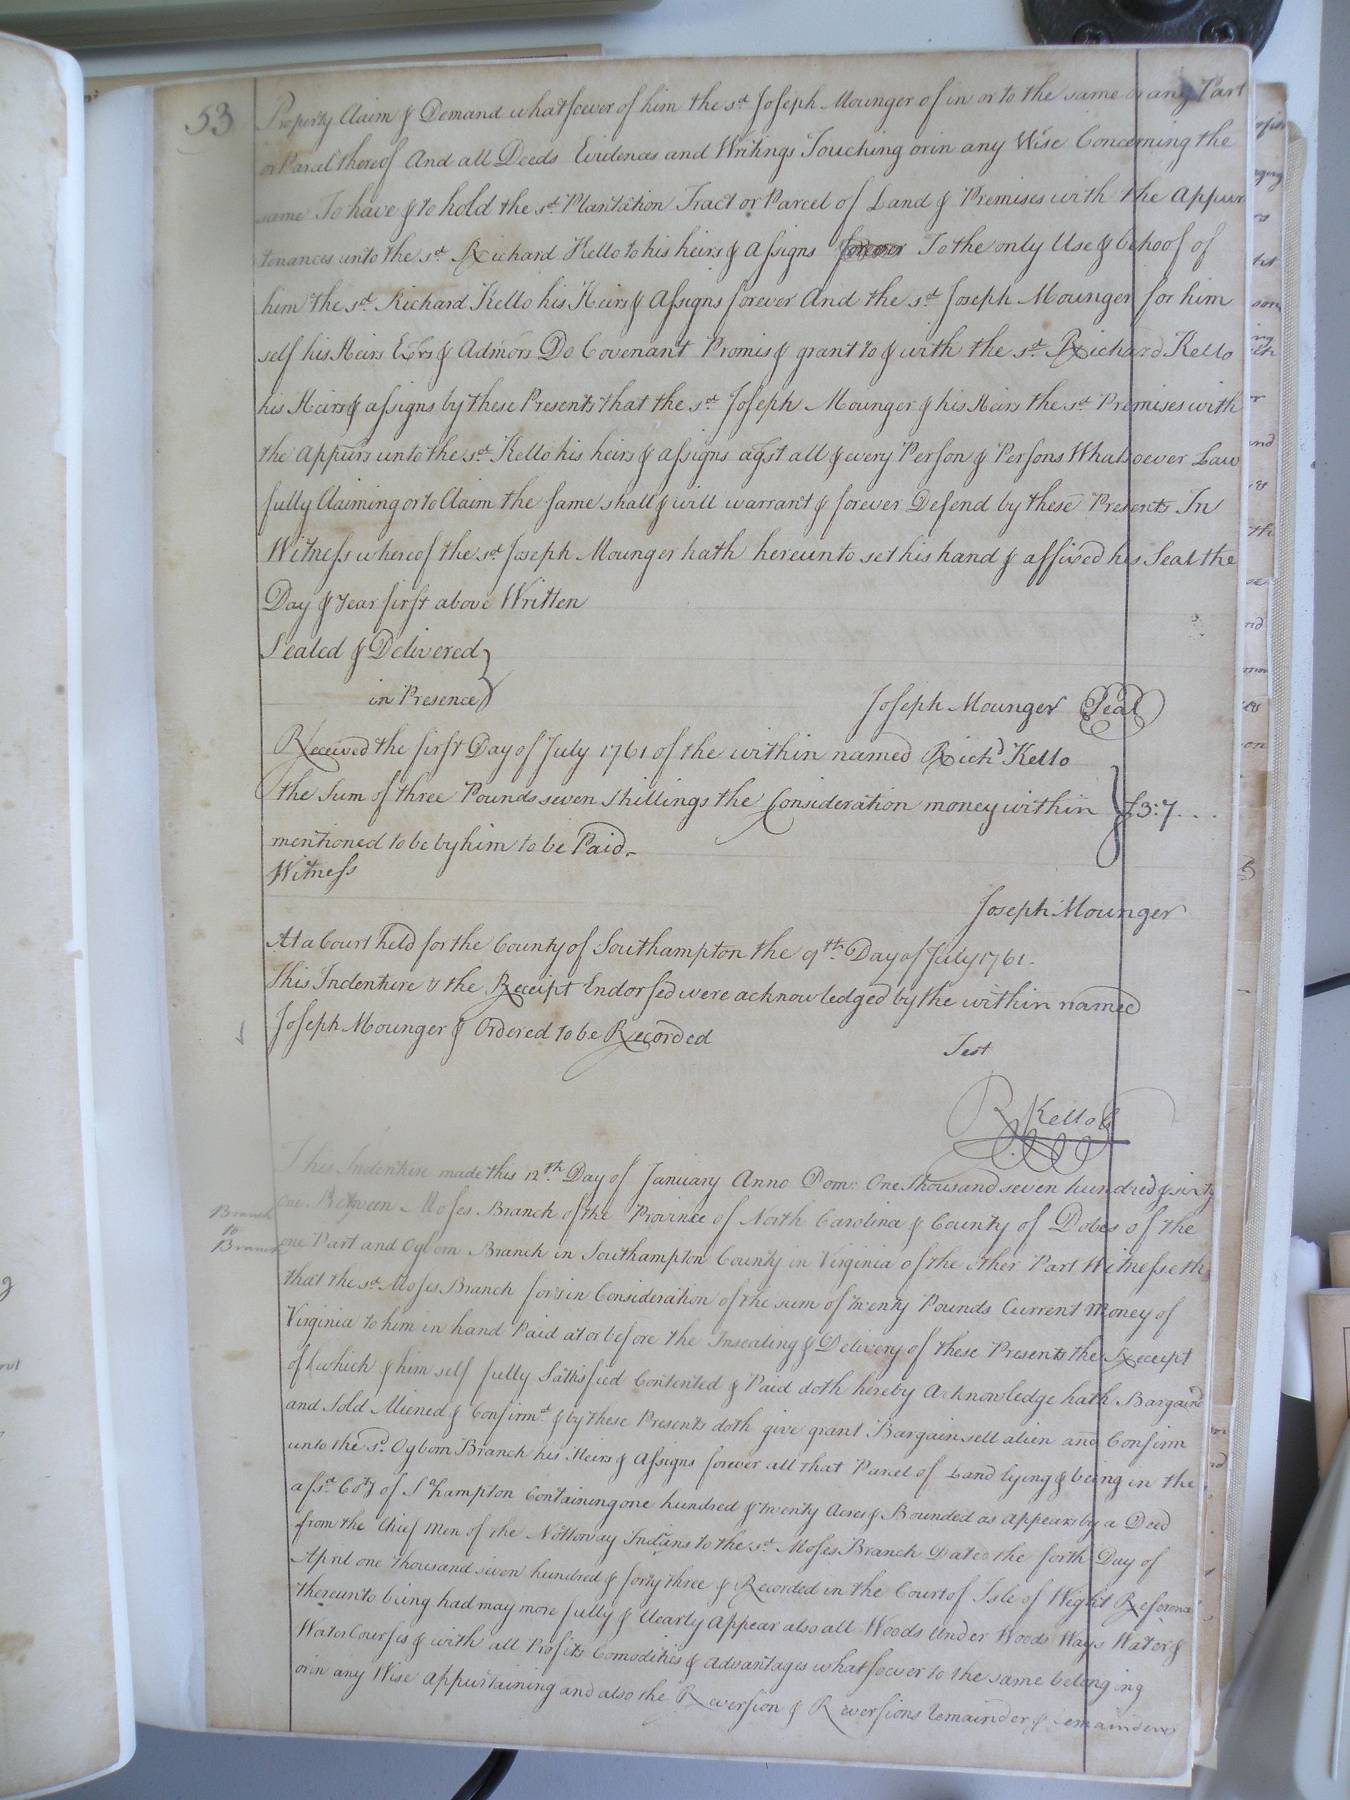 53
Property Claim & Demand whatsoever of him the sd Joseph Mounger of in or to the same or any Part
or Parcel thereof And all Deeds Evidences and Writings Touching or in any Wise Concerning the
same To have & to hold the sd Plantation Tract or Parcel of Land & Premises with the Appur
tenances unto the sd Richard Kello to his heirs & assigns To the only Use & behoof of
him the sd Richard Kello his Heirs & Assigns forever And the sd Joseph Mounger for him
self his Heirs Exrs & Admors Do Covenant Promis & grant to & with the sd Richard Kello
his Heirs & assigns by these Presents that the sd Joseph Mounger & his Heirs the sd Premises with
the Appurs unto the sd Kello his heirs & assigns agst all & every Person & Persons Whatsoever Law
fully Claiming or to Claim the same shall & will warrant & forever Defend by these Presents In
Witness whereof the sd Joseph Mounger hath hereunto set his hand & affixed his Seal the
Day & Year first above Written
Sealed & Delivered
in Presence
Joseph Mounger Seal
Received the first Day of July 1761 of the within named Richd Kello
the Sum of three Pounds seven shillings the Consideration money within £3:7...
mentioned to be by him to be Paid
Witness
Joseph Mounger
At a Court held for the County of Southampton the 9th Day of July 1761.
This Indenture & the Receipt Endorsed were acknowledged by the within named
Joseph Mounger & Ordered to be Recorded
Test
R Kello
Branch
to
Branch
This Indenture made this 12th Day of January Anno Dom: One thousand seven hundred & sixty
one Between Moses Branch of the Province of North Carolina & County of Dobes of the
one Part and Ogborn Branch in Southampton County in Virginia of the other Part Witnesseth
that the sd Moses Branch for & in Consideration of the sum of twenty Pounds Current Money of
Virginia to him in hand Paid at or before the Insealing & Delivery of these Presents the Receipt
of which & him self fully Sattisfied Contented & Paid doth hereby Acknowledge hath Bargaind
and Sold Aliened & Confirmd & by these Presents doth give grant Bargain sell alien and Confirm
unto the sd Ogborn Branch his Heirs & Assigns forever all that Parcel of Land lying & being in the
afsd Coty of S'hampton Containing one hundred & twenty Acres & Bounded as appears by a Deed
from the Chief Men of the Nottoway Indians to the sd Moses Branch Dated the forth Day of
April one thousand seven hundred & forty three & Recorded in the Court of Isle of Wight Referone
thereunto being had may more fully & Clearly Appear also all Woods Under Woods Ways Water &
Water Courses & with all Profits Comodities & Advantages whatsoever to the same belonging
or in any Wise Appurtaining and also the Reversion & Reversions remainder & remainders